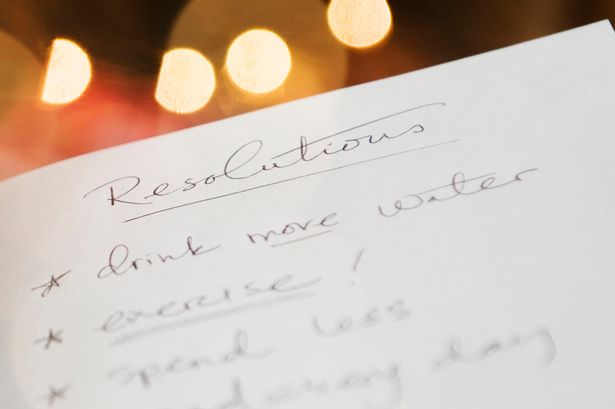 Resolutions
* drink more water
* exercise!
* spend less
* every day